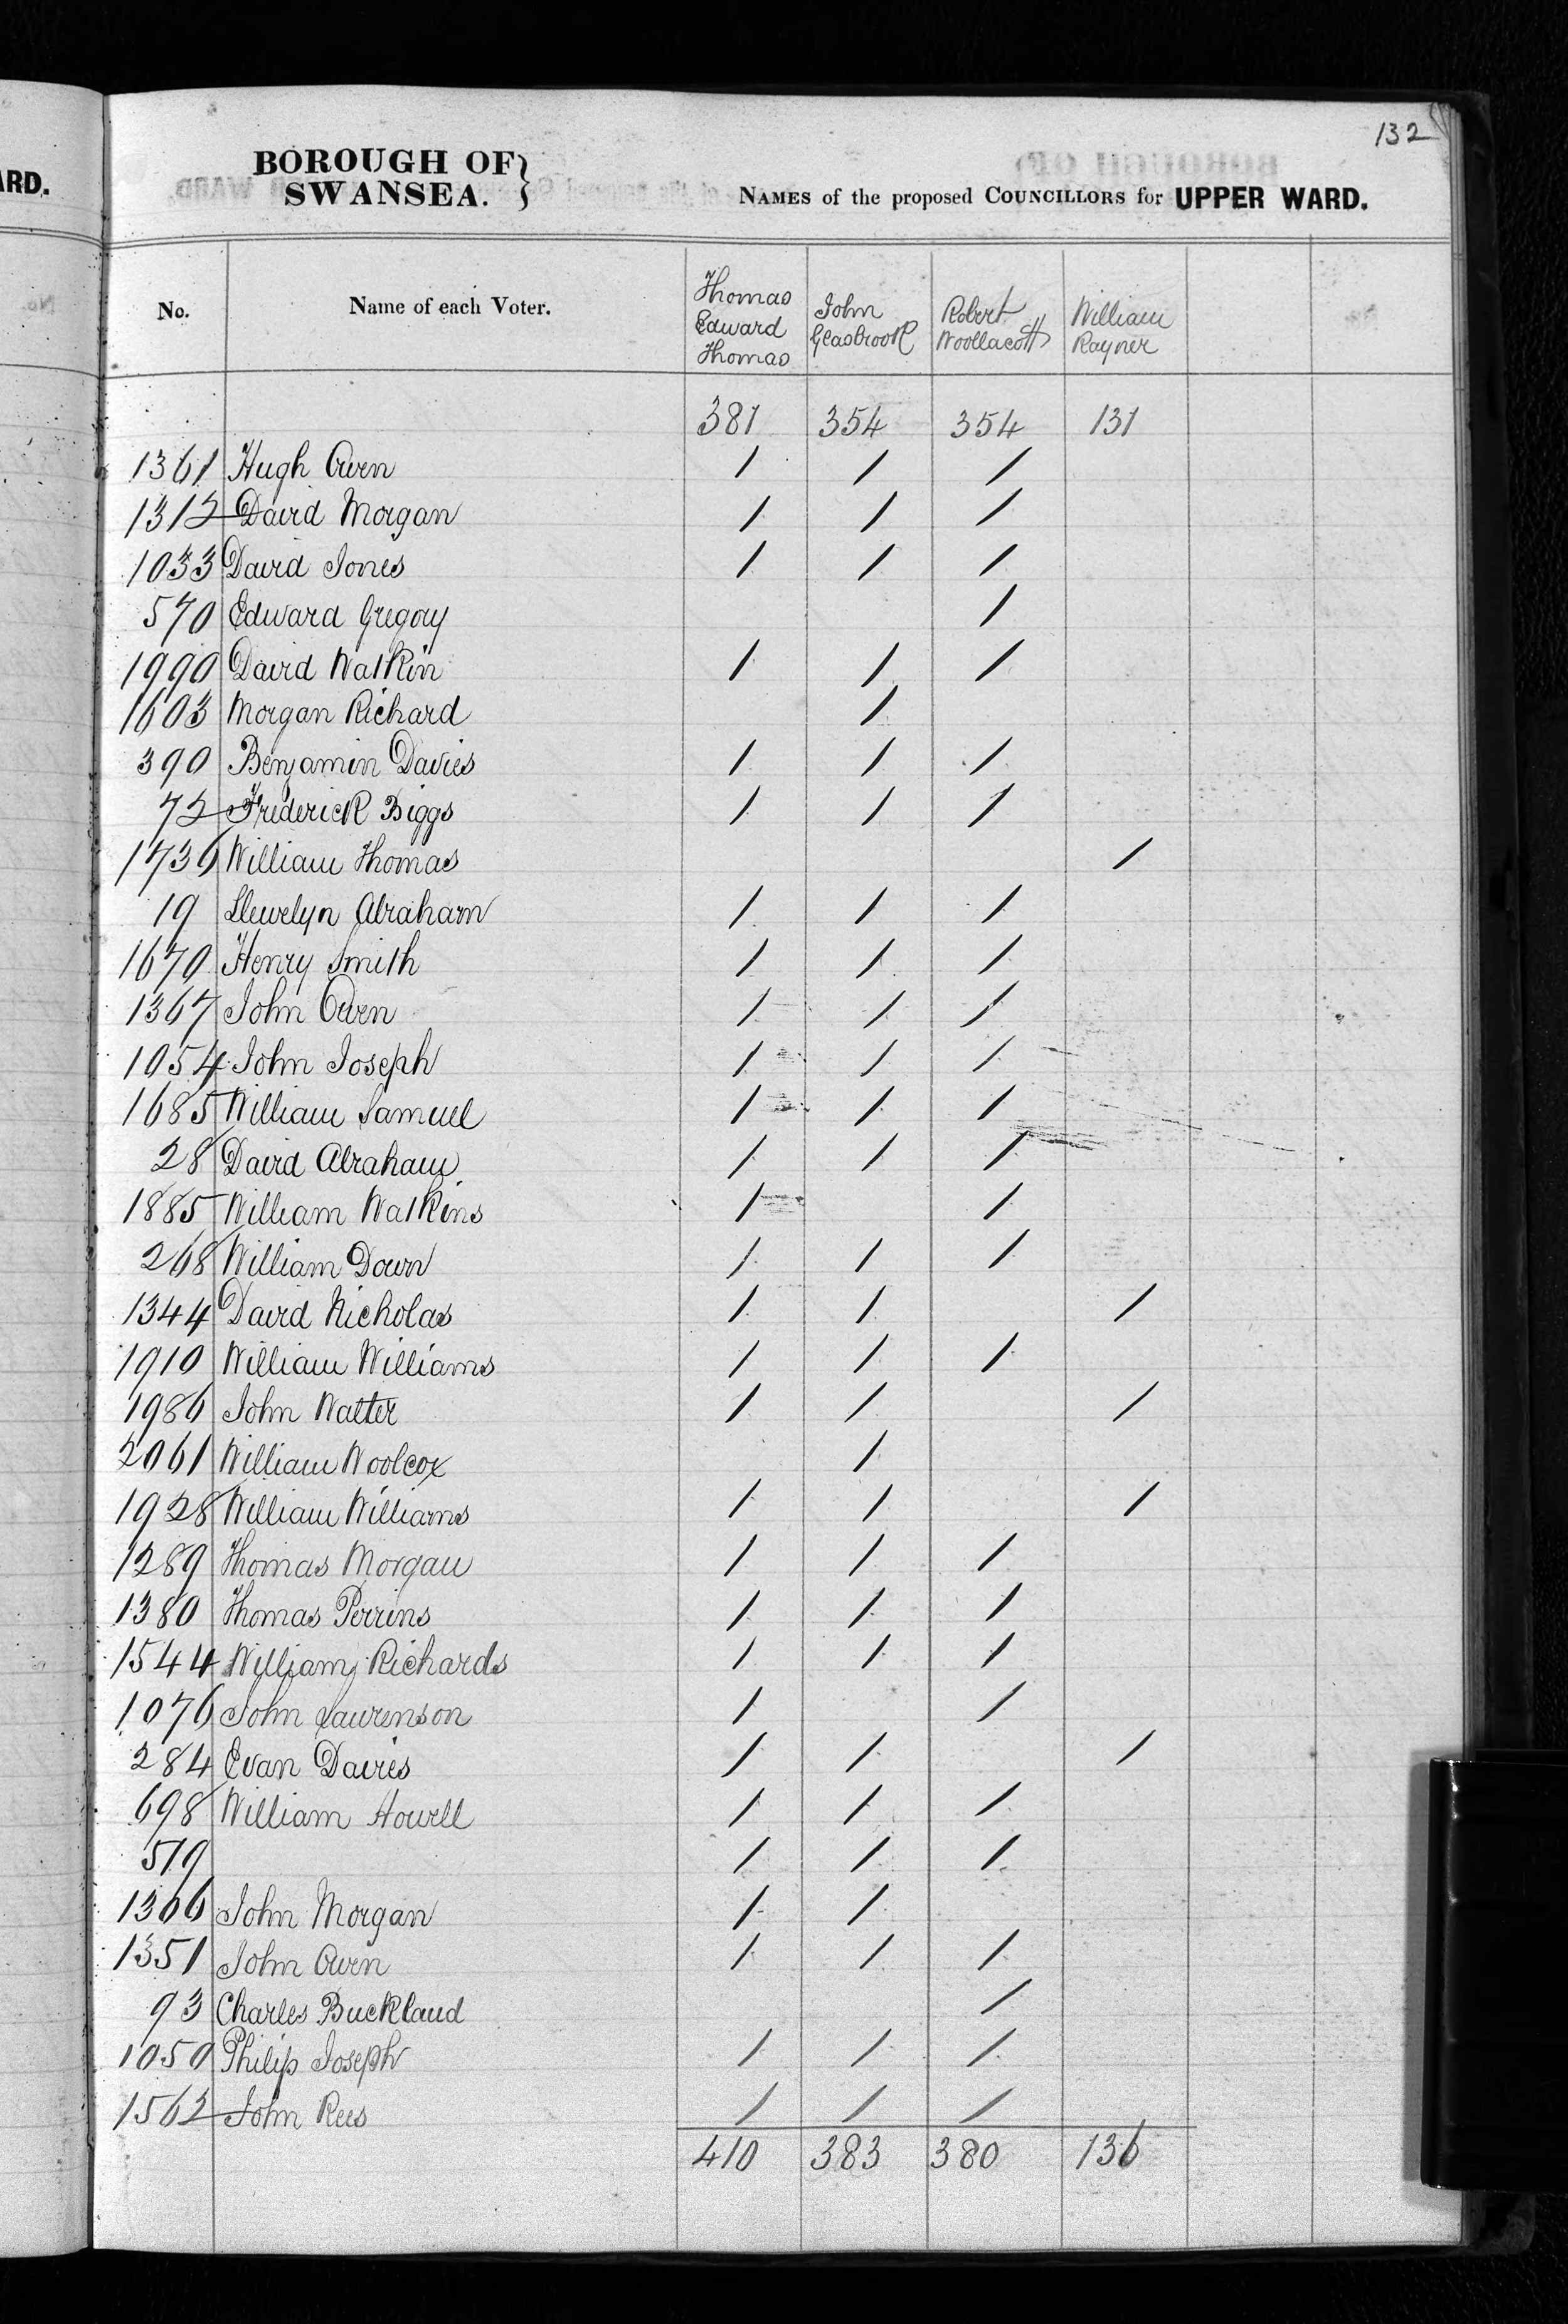 132
ARD.
BOROUGH OF }
SWANSEA.
NAMES of the proposed COUNCILLORS for UPPER WARD.
No. Name of each Voter. Thomas Edward Thomas John Glasbrook Robert Woollacott William Rayner
381 354 354 131
1361 Hugh Owen / / /
1312 David Morgan / / /
1033 David Jones / / /
570 Edward Gregory /
1990 David Watkin / / /
1603 Morgan Richard /
390 Benjamin Davies / / /
72 Frederick Biggs / / /
1736 William Thomas /
19 Llewelyn Abraham / / /
1670 Henry Smith / / /
1367 John Owen / / /
1054 John Joseph / / /
1685 William Samuel / / /
28 David Abraham / / /
1885 William Watkins / /
268 William Down / / /
1344 David Nicholas / / /
1910 William Williams / / /
1986 John Watter / / /
2061 William Woolcox /
1928 William Williams / / /
1289 Thomas Morgan / / /
1380 Thomas Perrins / / /
1544 William Richards / / /
1076 John Laurenson / /
284 Evan Davies / / /
698 William Howell / / /
519 / / /
1306 John Morgan / /
1351 John Owen / / /
93 Charles Buckland /
1050 Philip Joseph / / /
1562 John Rees / / /
410 383 380 136